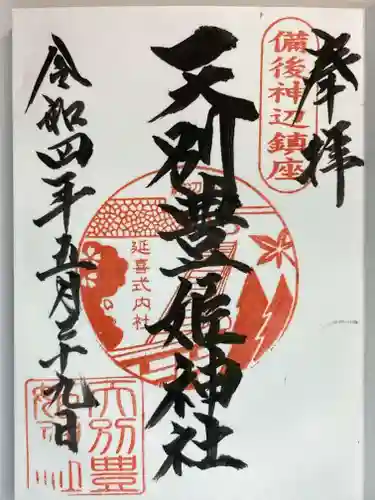 奉拝
備後神辺鎮座
天別豊姫神社
延喜式内社
令和四年五月二十九日
天別豊
姫神社